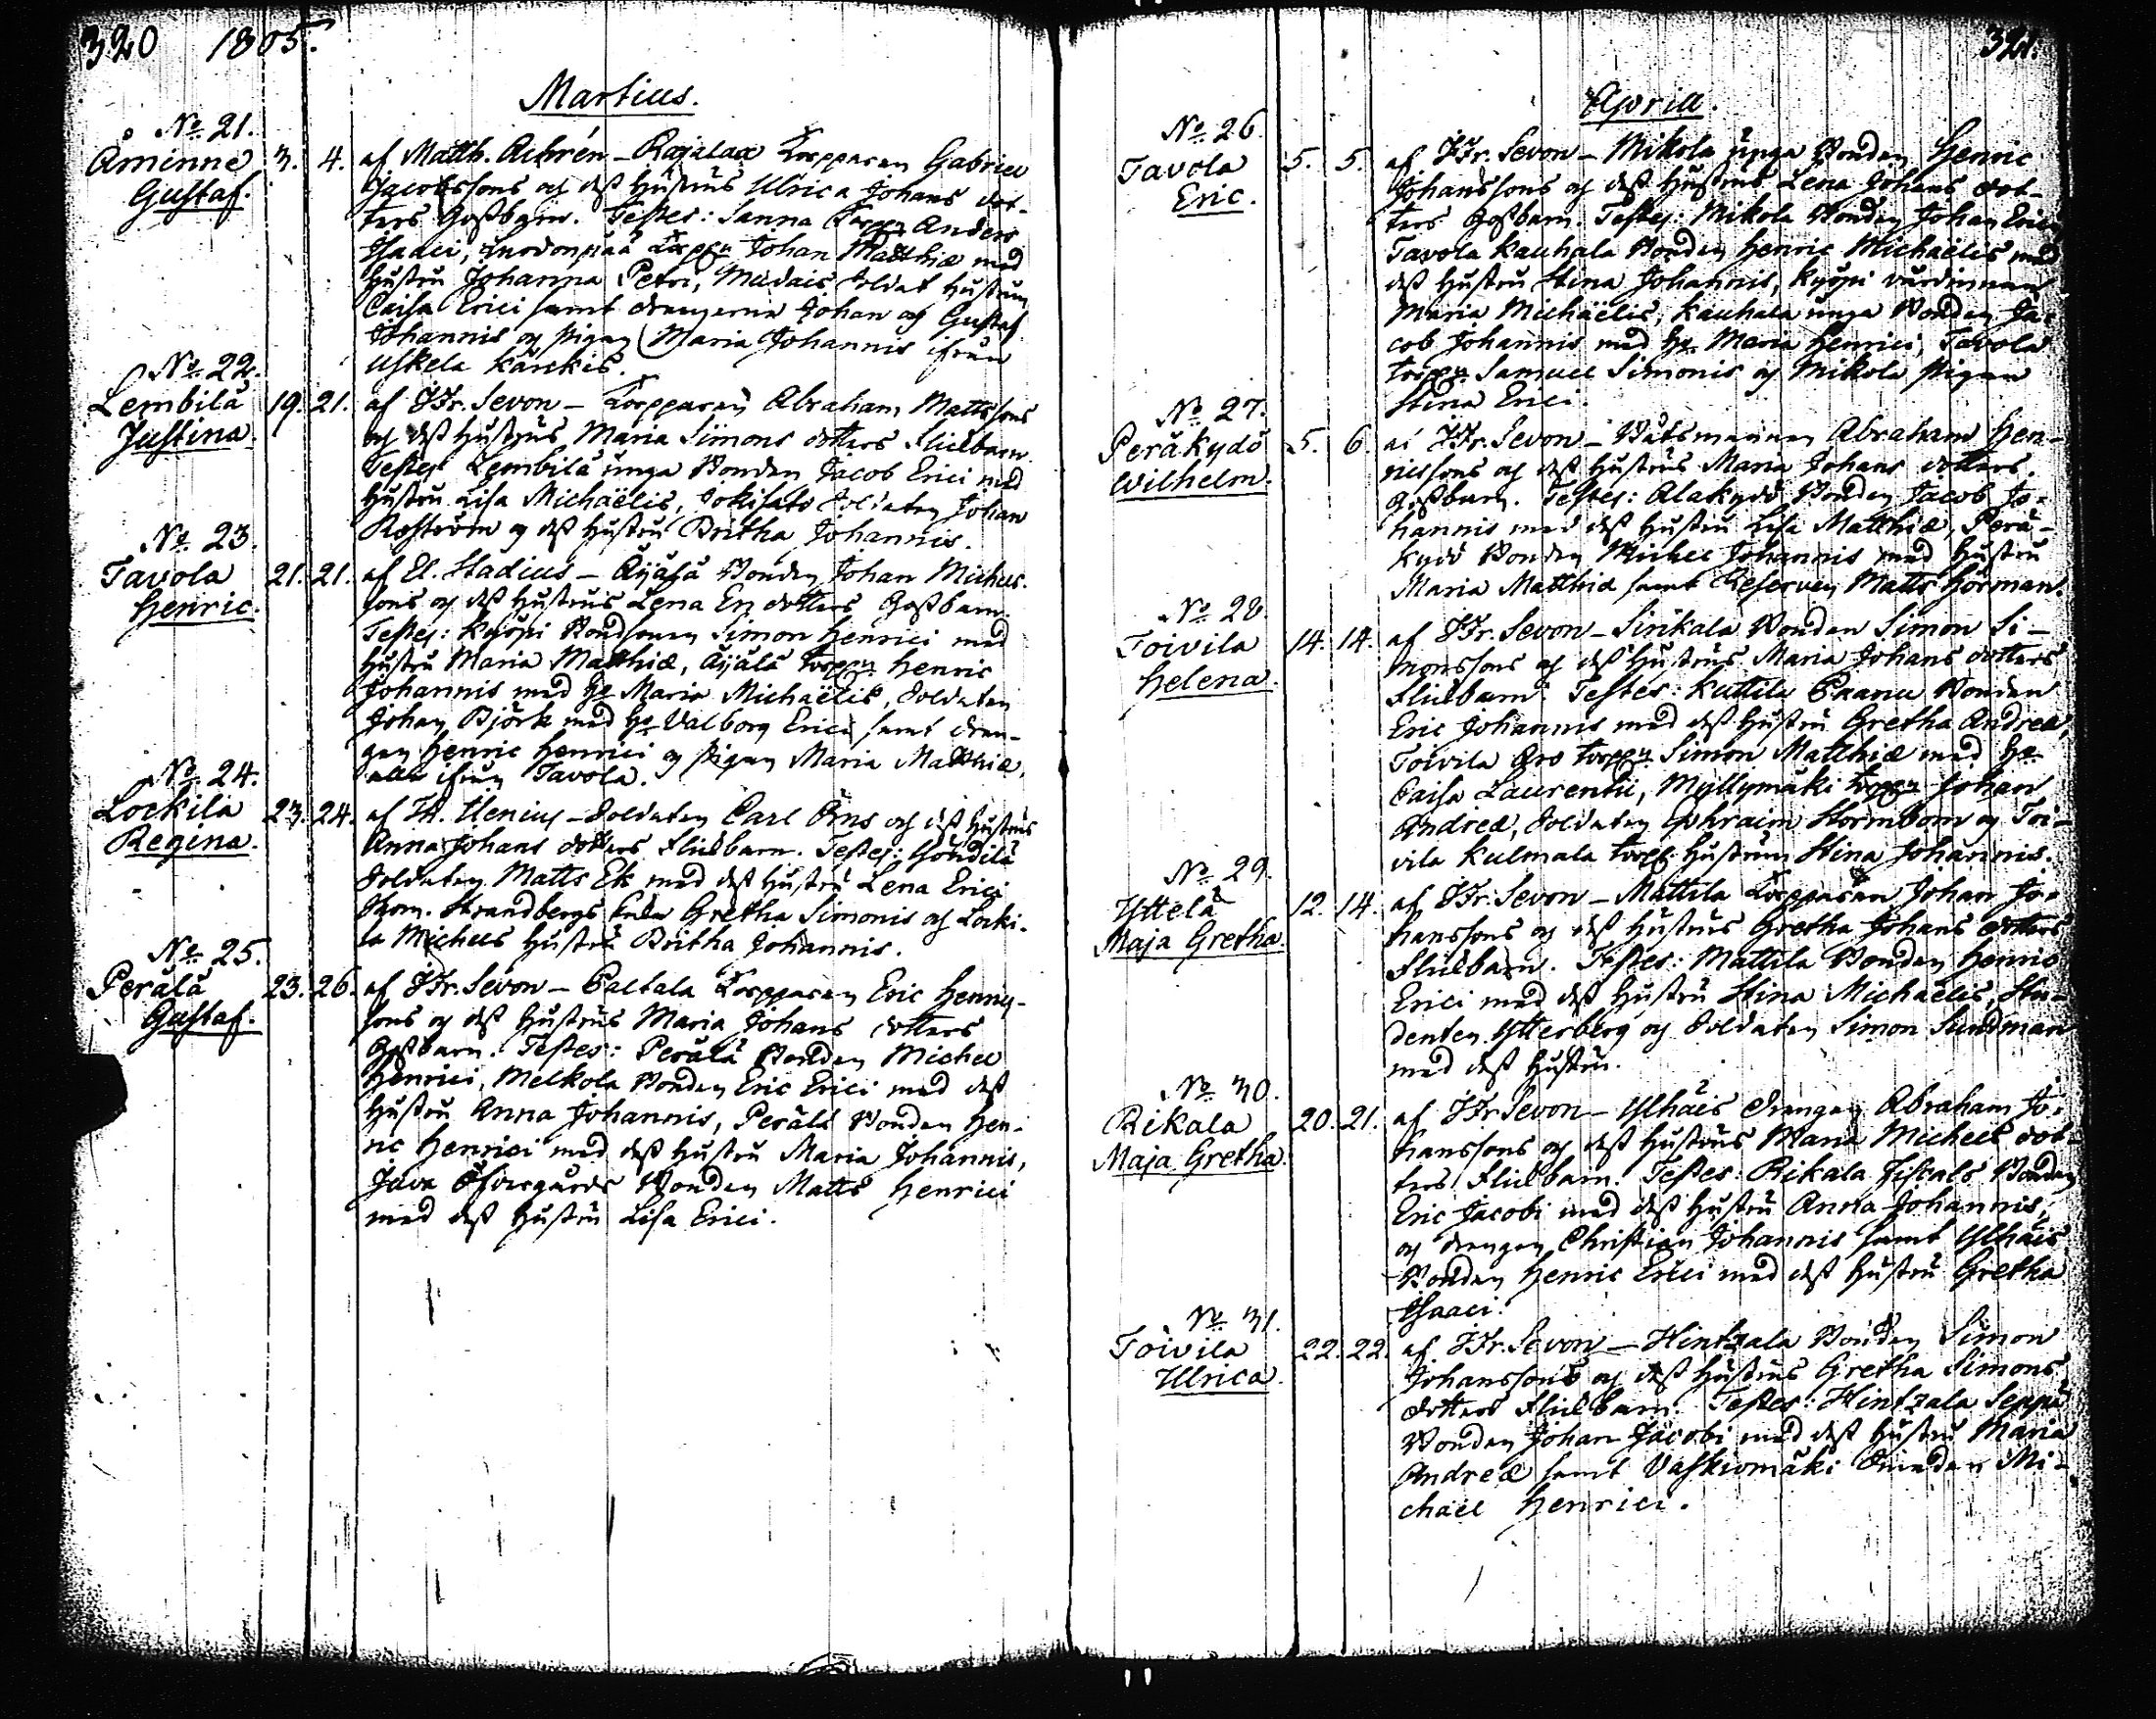 320 1805.
Martius.
No. 21.
Åminne 3. 4. af Matth. Achrén – Rajalaa Torpparen Gabriel
Gustaf. Jacobssons og dess Hustrus Ulrica Johans dot-
ters Gossbarn. Testes: Sanna Torpp. Anders
Isaaci, Torpp. Johan Matthiæ med
Hustru Johanna Petri, Soldat Hustrun
Caisa Erici samt drengarna Johan og Gustaf
Johannis og Pigan Maria Johannis ifrån
Uskela Kärckis.
No. 22.
Lembilä 19. 21. af JFr. Sevon – Torpparen Abraham Mattssons
Justina. og dess Hustrus Maria Simons dotters Flickbarn.
Testes: Lembilä unga Bonden Jacob Erici med
Hustru Lisa Michaëlis, Soldaten Johan
og dess Hustru Britha Johannis.
No. 23.
Tavola 21. 21. af El. Stadius – Äijälä Bonden Johan Michels-
Henric. sons og dess Hustrus Lena Erics dotters Gossbarn.
Testes: Kyöpi Bondsonen Simon Henrici med
Hustru Maria Matthiæ, Äijälä torpp. Henric
Johannis med H. Maria Michaëlis, Soldaten
Johan Björk med H. Valborg Erici samt dren-
gen Henric Henrici og Pigan Maria Matthiæ,
alla ifrån Tavola.
No. 24.
Lockila 23. 24. af Soldaten Carl Öns og dess Hustrus
Regina. Anna Johans dotters Flickbarn. Testes: Göndilä
Soldaten Matts Ek med dess Hustru Lena Erici
Strandbergs Enka Gretha Simonis og Locki-
la Michels Hustru Britha Johannis.
No. 25.
Perälä 23. 26. af JFr. Sevon – Paltala Torpparen Eric Henrics-
Gustaf. sons og dess Hustrus Maria Johans dotters
Gossbarn. Testes: Perälä Bonden Michel
Henrici, Melkola Bonden Eric Erici med dess
Hustru Anna Johannis, Perälä Bonden Hen-
ric Henrici med dess Hustru Maria Johannis,
Öfvergårds Bonden Matts Henrici
med dess Hustru Lisa Erici.
321.
April.
No. 26.
Tavola 5. 5. af JFr. Sevon – Mikola unga Bonden Henric
Eric. Johanssons og dess Hustrus Lena Johans dot-
ters Gossbarn. Testes: Mikola Bonden Johan Erici
Tavola Kauhala Bonden Henric Michaëlis med
dess Hustru Stina Johannis, Kyöpi värdinnan
Maria Michaëlis, Kauhala unga Bonden Ja-
cob Johannis med H. Maria Henrici, Tavola
torpp. Samuel Simonis og Mikola Pigan
Stina Erici.
No. 27.
Peräkydö 5. 6. af JFr. Sevon – Båtsmannen Abraham Hen-
Wilhelm. ricssons og dess Hustrus Maria Johans dotters
Gossbarn. Testes: Alakydö Bonden Jacob Jo-
hannis med dess Hustru Lisa Matthiæ, Perä-
kydö Bonden Michel Johannis med Hustru
Maria Matthiæ samt Reserven Matts Hörman.
No. 28.
Toivila 14. 14. af JFr. Sevon – Sirikala Bonden Simon Si-
Helena. monssons og dess Hustrus Maria Johans dotters
Flickbarn. Testes: Kuttila Bonden
Eric Johannis med dess Hustru Gretha Andreæ,
Toivila Aro torpp. Simon Matthiæ med H.
Caisa Laurentii, Myllymäki torpp. Johan
Andreæ, Soldaten Ephraim Stormbom og Toi-
vila Kulmala torpp. Hustrun Stina Johannis.
No. 29.
Yttelä 12. 14. af JFr. Sevon – Mattila Torpparen Johan Jo-
Maja Gretha. hanssons og dess Hustrus Gretha Johans dotters
Flickbarn. Testes: Mattila Bonden Henric
Erici med dess Hustru Stina Michaëlis, Stu-
denten Ytterberg og Soldaten Simon Sundman
med dess Hustru.
No. 30.
Rikala 20. 21. af JFr. Sevon – Ylhäis Drengen Abraham Jo-
Maja Gretha. hanssons og dess Hustrus Maria Michels dot-
ters Flickbarn. Testes: Rikala Fiskals Bonden
Eric Jacobi med dess Hustru Anna Johannis,
og drengen Christian Johannis samt Ylhäis
Bonden Henric Erici med dess Hustru Gretha
Isaaci.
No. 31.
Toivila 22. 22. af JFr. Sevon – Hintzala Bonden Simon
Ulrica. Johanssons og dess Hustrus Gretha Simons
dotters Flickbarn. Testes: Hintzala Seppä
Bonden Johan Jacobi med dess Hustru Maria
Andreæ samt Vaskiomäki Mi-
chael Henrici.